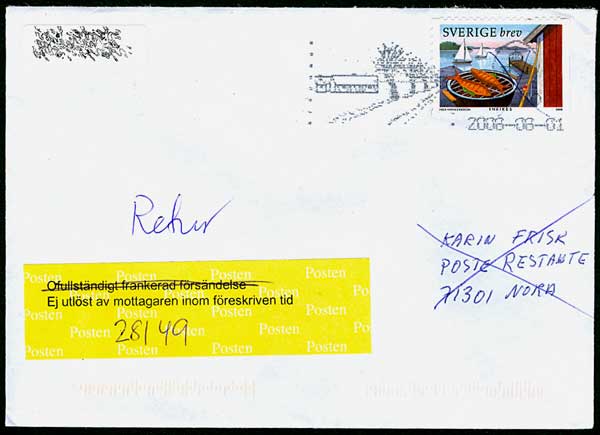 SVERIGE brev
2008-08-01
Retur
KARIN FRISK
POSTE RESTANTE
71301 NORA
Posten Posten Posten Posten
Ofullständigt frankerad försändelse
Ej utlöst av mottagaren inom föreskriven tid
28/49
Posten Posten Posten Posten
Posten Posten Posten Posten